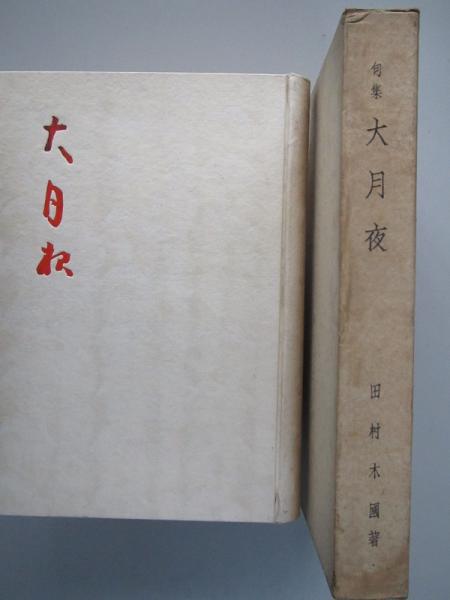 大月夜
句集 大月夜 田村木國著